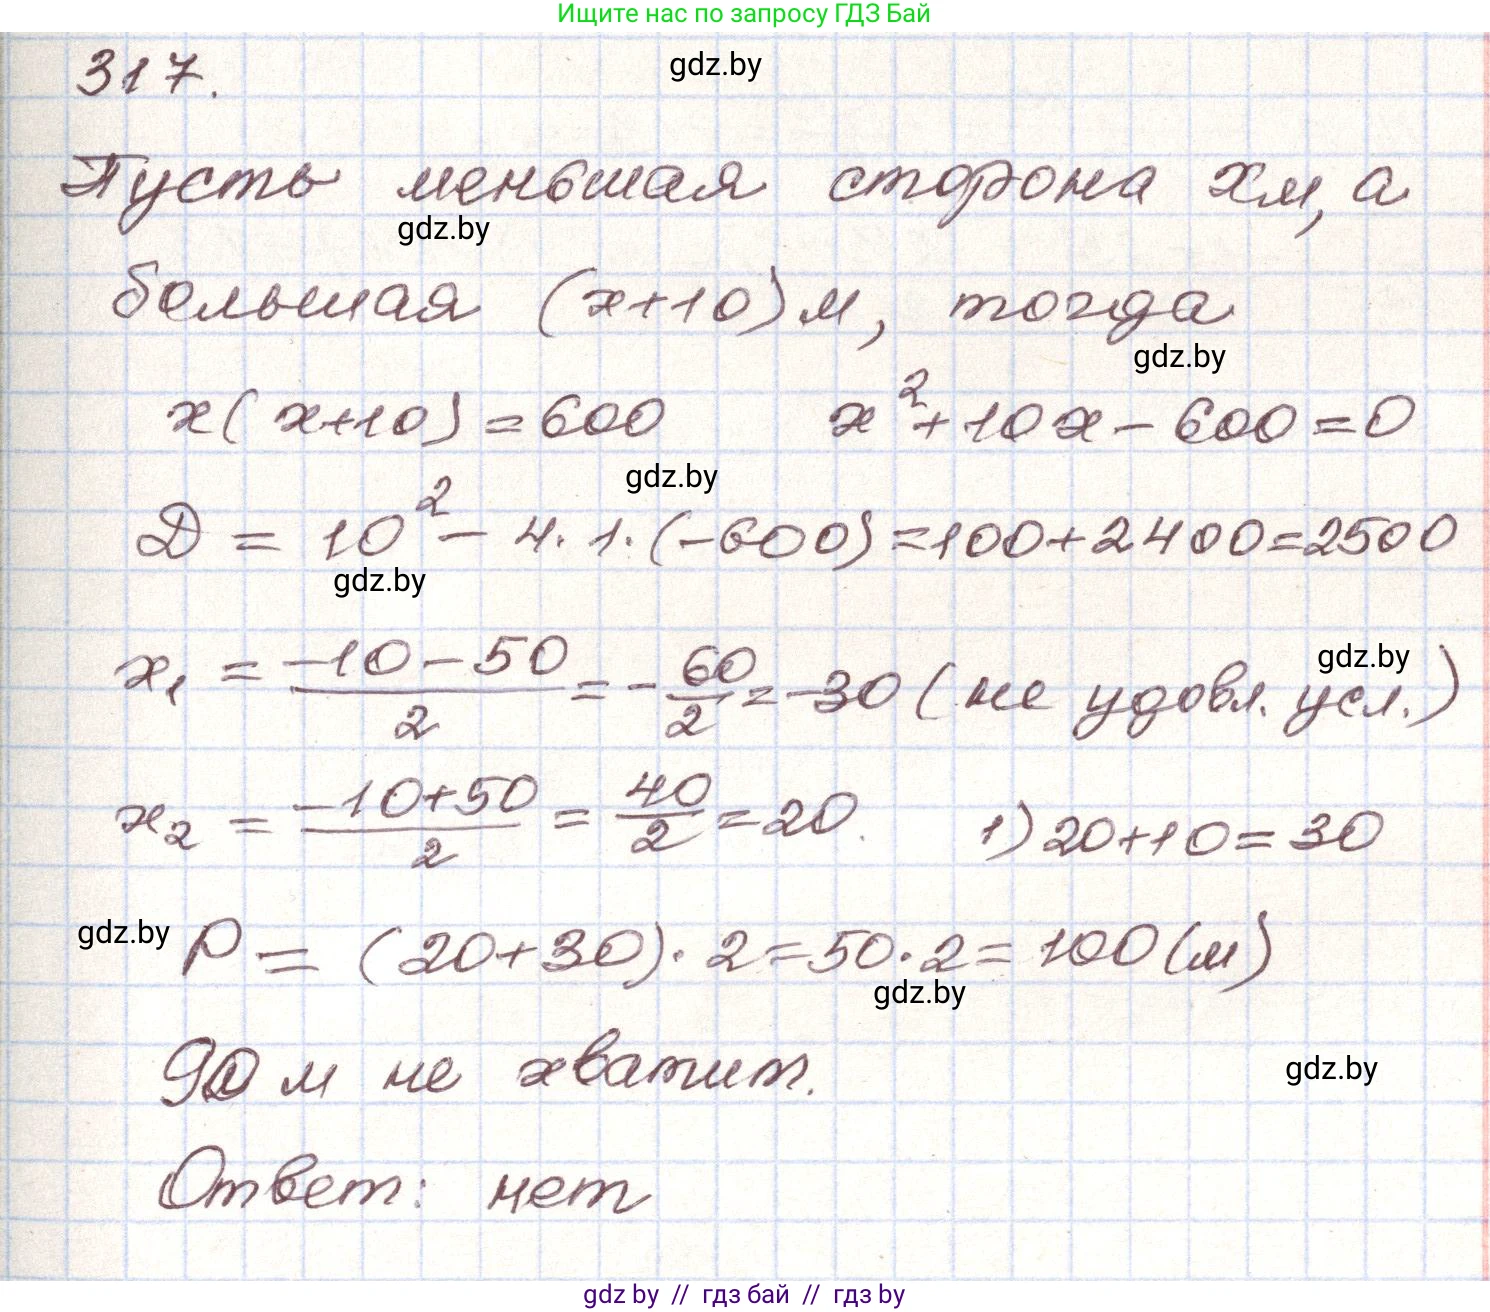 Ищите нас по запросу ГДЗ Бай
317.
gdz.by
Пусть меньшая сторона x м, а
gdz.by
большая (x+10) м, тогда
gdz.by
x(x+10)=600 x²+10x-600=0
gdz.by
D = 10² - 4·1·(-600)=100+2400=2500
gdz.by
gdz.by
x₁ = (-10-50)/2 = -60/2 = -30 (не удовл. усл.)
x₂ = (-10+50)/2 = 40/2 = 20. 1) 20+10=30
gdz.by
P = (20+30)·2=50·2=100(м)
gdz.by
90 м не хватит.
gdz.by
Ответ: нет
gdz by // гдз бай // гдз by